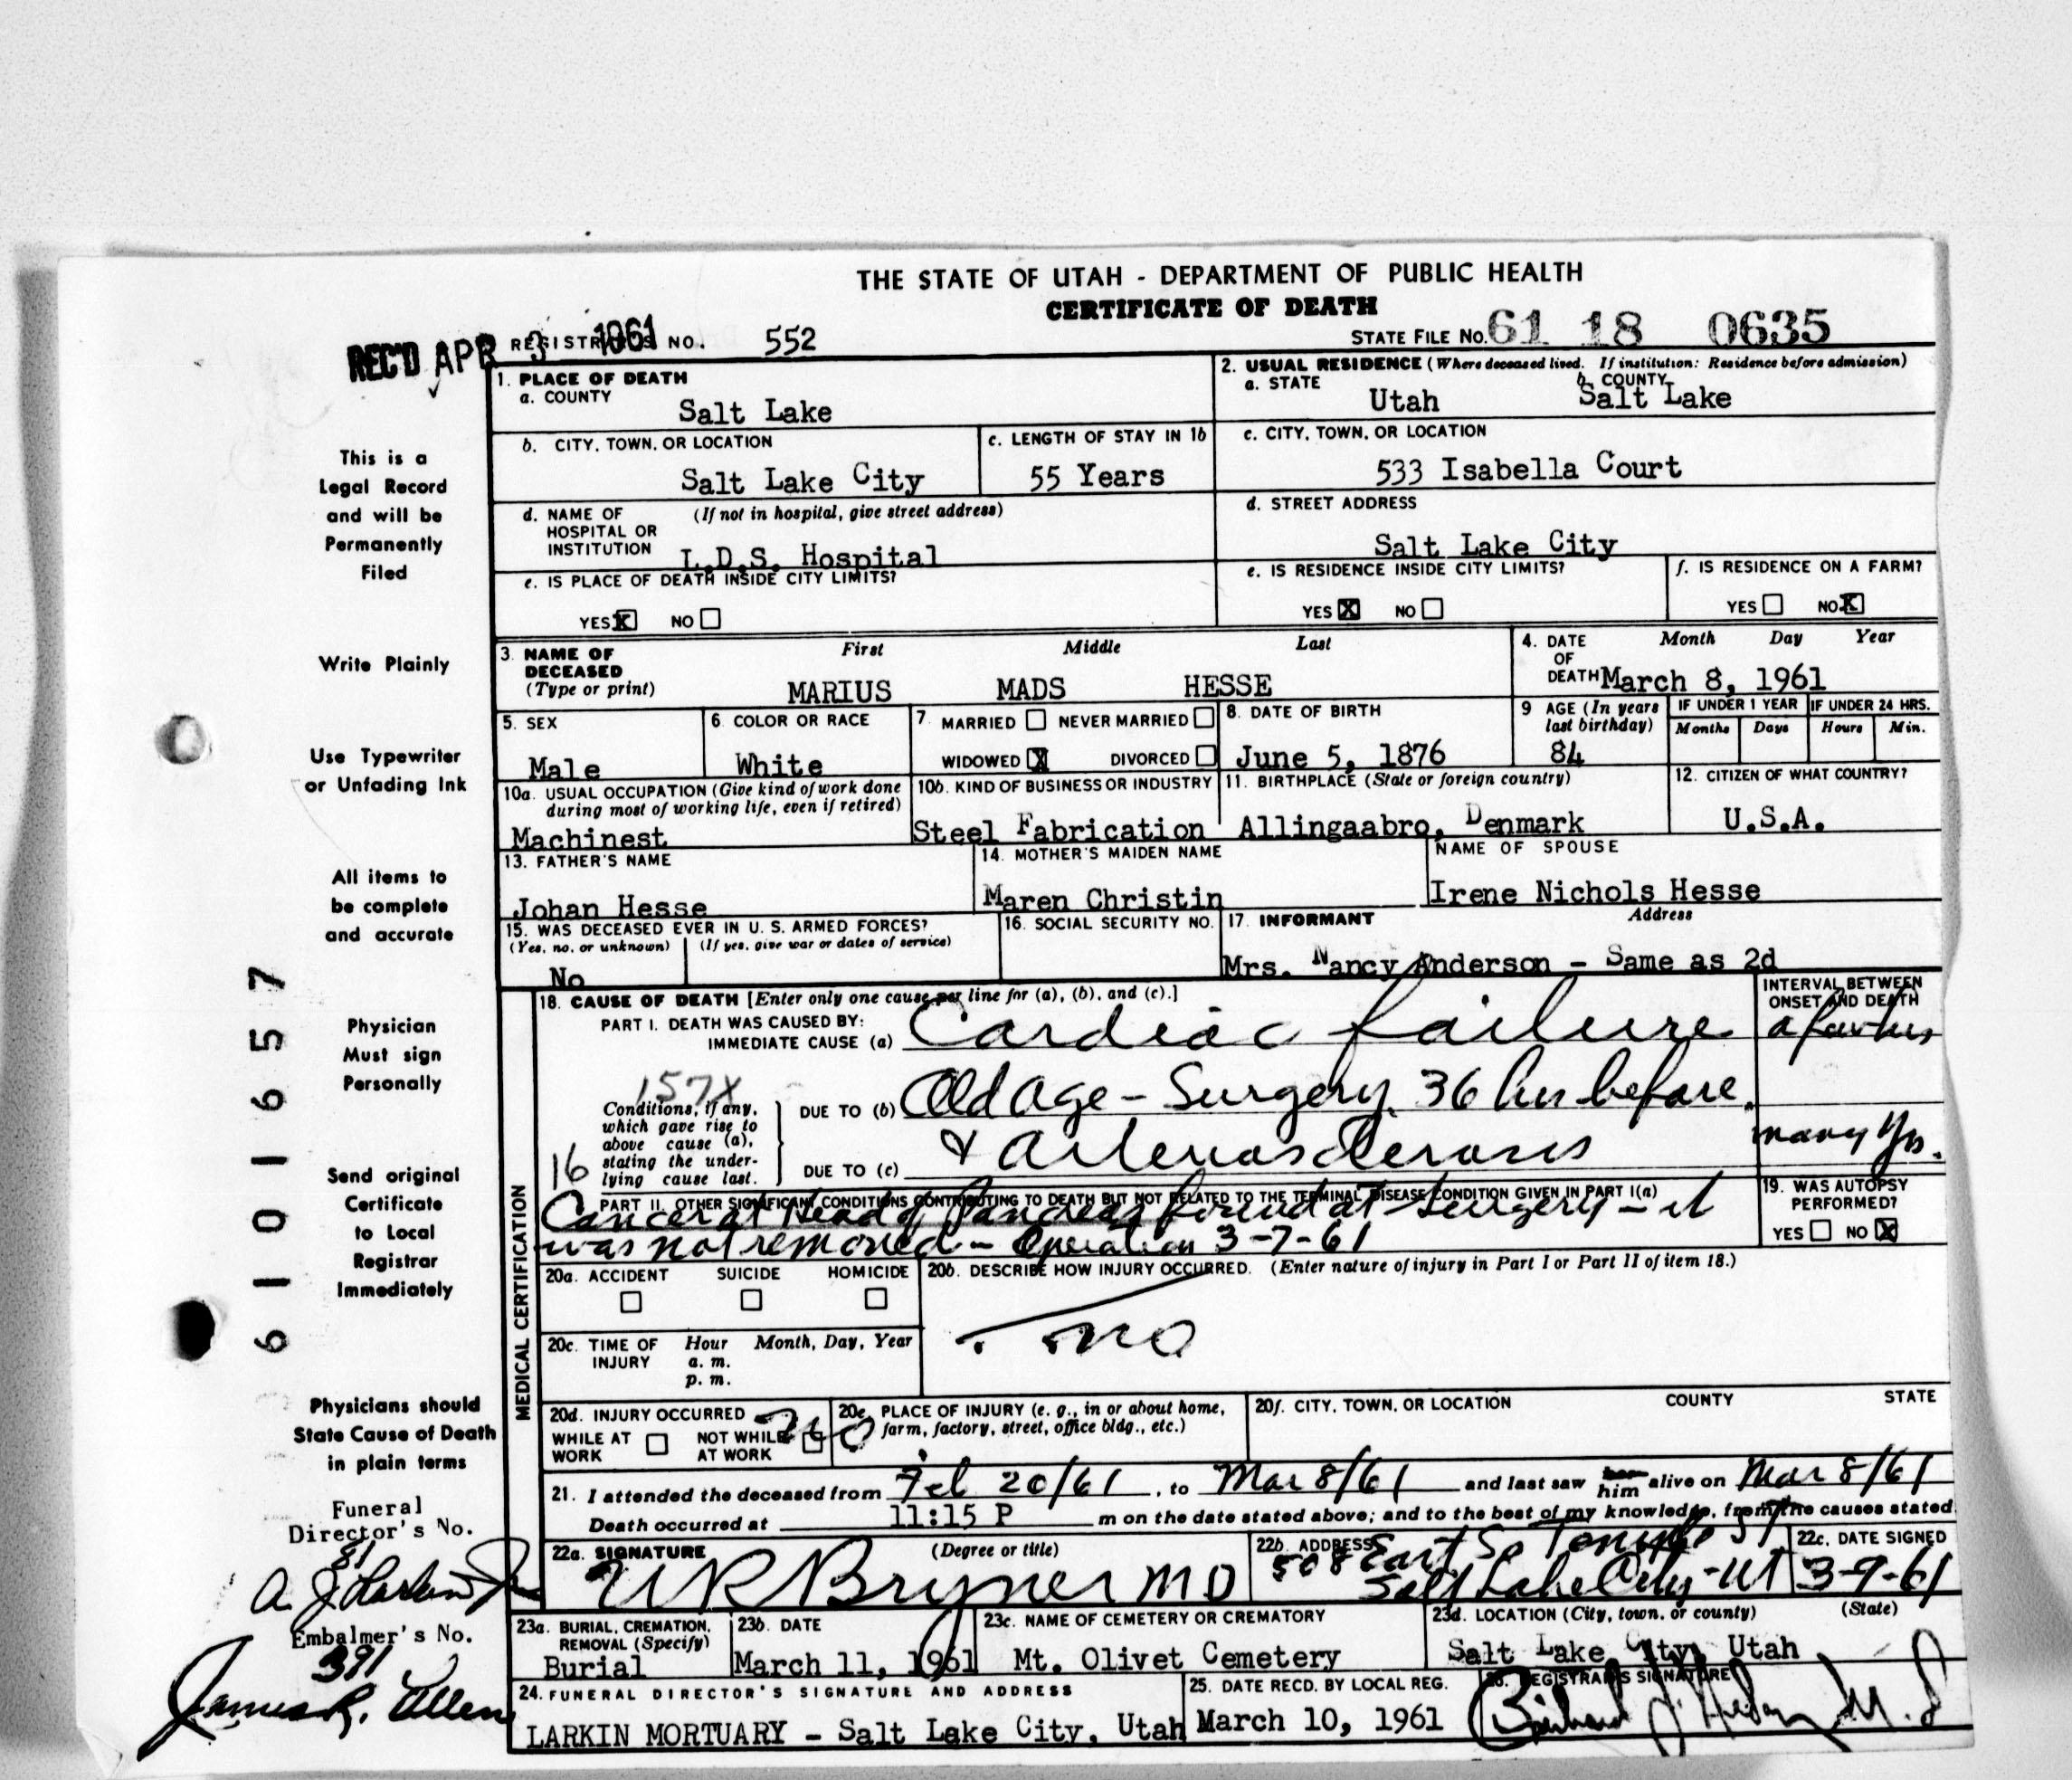 THE STATE OF UTAH - DEPARTMENT OF PUBLIC HEALTH
CERTIFICATE OF DEATH
REC'D APR 3 1961 REGISTRAR'S NO. 552
STATE FILE No. 61 18 0635
1. PLACE OF DEATH
a. COUNTY
Salt Lake
2. USUAL RESIDENCE (Where deceased lived. If institution: Residence before admission)
a. STATE
Utah
b. COUNTY
Salt Lake
b. CITY, TOWN, OR LOCATION
Salt Lake City
c. LENGTH OF STAY IN 1b
55 Years
c. CITY, TOWN, OR LOCATION
533 Isabella Court
d. NAME OF HOSPITAL OR INSTITUTION (If not in hospital, give street address)
L.D.S. Hospital
d. STREET ADDRESS
Salt Lake City
e. IS PLACE OF DEATH INSIDE CITY LIMITS?
YES X NO
e. IS RESIDENCE INSIDE CITY LIMITS?
YES X NO
f. IS RESIDENCE ON A FARM?
YES NO X
3. NAME OF DECEASED (Type or print)
First Middle Last
MARIUS MADS HESSE
4. DATE OF DEATH
Month Day Year
March 8, 1961
5. SEX
Male
6. COLOR OR RACE
White
7. MARRIED NEVER MARRIED
WIDOWED X DIVORCED
8. DATE OF BIRTH
June 5, 1876
9 AGE (In years last birthday)
84
IF UNDER 1 YEAR
Months Days
IF UNDER 24 HRS.
Hours Min.
10a. USUAL OCCUPATION (Give kind of work done during most of working life, even if retired)
Machinest
10b. KIND OF BUSINESS OR INDUSTRY
Steel Fabrication
11. BIRTHPLACE (State or foreign country)
Allingaabro, Denmark
12. CITIZEN OF WHAT COUNTRY?
U.S.A.
13. FATHER'S NAME
Johan Hesse
14. MOTHER'S MAIDEN NAME
Maren Christin
NAME OF SPOUSE
Irene Nichols Hesse
15. WAS DECEASED EVER IN U. S. ARMED FORCES?
(Yes, no, or unknown) (If yes, give war or dates of service)
No
16. SOCIAL SECURITY NO.
17. INFORMANT Address
Mrs. Nancy Anderson - Same as 2d
MEDICAL CERTIFICATION
18. CAUSE OF DEATH [Enter only one cause per line for (a), (b), and (c).]
INTERVAL BETWEEN ONSET AND DEATH
PART I. DEATH WAS CAUSED BY:
IMMEDIATE CAUSE (a) Cardiac failure
a few hrs
157X
16
Conditions, if any, which gave rise to above cause (a), stating the underlying cause last.
DUE TO (b) Old Age - Surgery 36 hrs before
DUE TO (c) & Arteriosclerosis
many yrs.
PART II. OTHER SIGNIFICANT CONDITIONS CONTRIBUTING TO DEATH BUT NOT RELATED TO THE TERMINAL DISEASE CONDITION GIVEN IN PART I(a)
Cancer at Head of Pancreas found at surgery - it
was not removed - Operation 3-7-61
19. WAS AUTOPSY PERFORMED?
YES NO X
20a. ACCIDENT SUICIDE HOMICIDE
20b. DESCRIBE HOW INJURY OCCURRED. (Enter nature of injury in Part I or Part II of item 18.)
no
20c. TIME OF INJURY Hour Month, Day, Year
a. m.
p. m.
20d. INJURY OCCURRED
WHILE AT WORK NOT WHILE AT WORK
no
20e. PLACE OF INJURY (e. g., in or about home, farm, factory, street, office bldg., etc.)
20f. CITY, TOWN, OR LOCATION COUNTY STATE
21. I attended the deceased from Feb 20/61, to Mar 8/61 and last saw her him alive on Mar 8/61
Death occurred at 11:15 P m on the date stated above; and to the best of my knowledge, from the causes stated.
22a. SIGNATURE (Degree or title)
U R Bryner MD
22b. ADDRESS
508 East So Temple ST
Salt Lake City - Ut
22c. DATE SIGNED
3-9-61
23a. BURIAL, CREMATION, REMOVAL (Specify)
Burial
23b. DATE
March 11, 1961
23c. NAME OF CEMETERY OR CREMATORY
Mt. Olivet Cemetery
23d. LOCATION (City, town, or county) (State)
Salt Lake City, Utah
24. FUNERAL DIRECTOR'S SIGNATURE AND ADDRESS
LARKIN MORTUARY - Salt Lake City, Utah
25. DATE RECD. BY LOCAL REG.
March 10, 1961
26. REGISTRAR'S SIGNATURE
This is a
Legal Record
and will be
Permanently
Filed
Write Plainly
Use Typewriter
or Unfading Ink
All items to
be complete
and accurate
Physician
Must sign
Personally
Send original
Certificate
to Local
Registrar
Immediately
Physicians should
State Cause of Death
in plain terms
Funeral
Director's No.
81
A. J. Larkin Jr
Embalmer's No.
391
James R. Allen
6101657